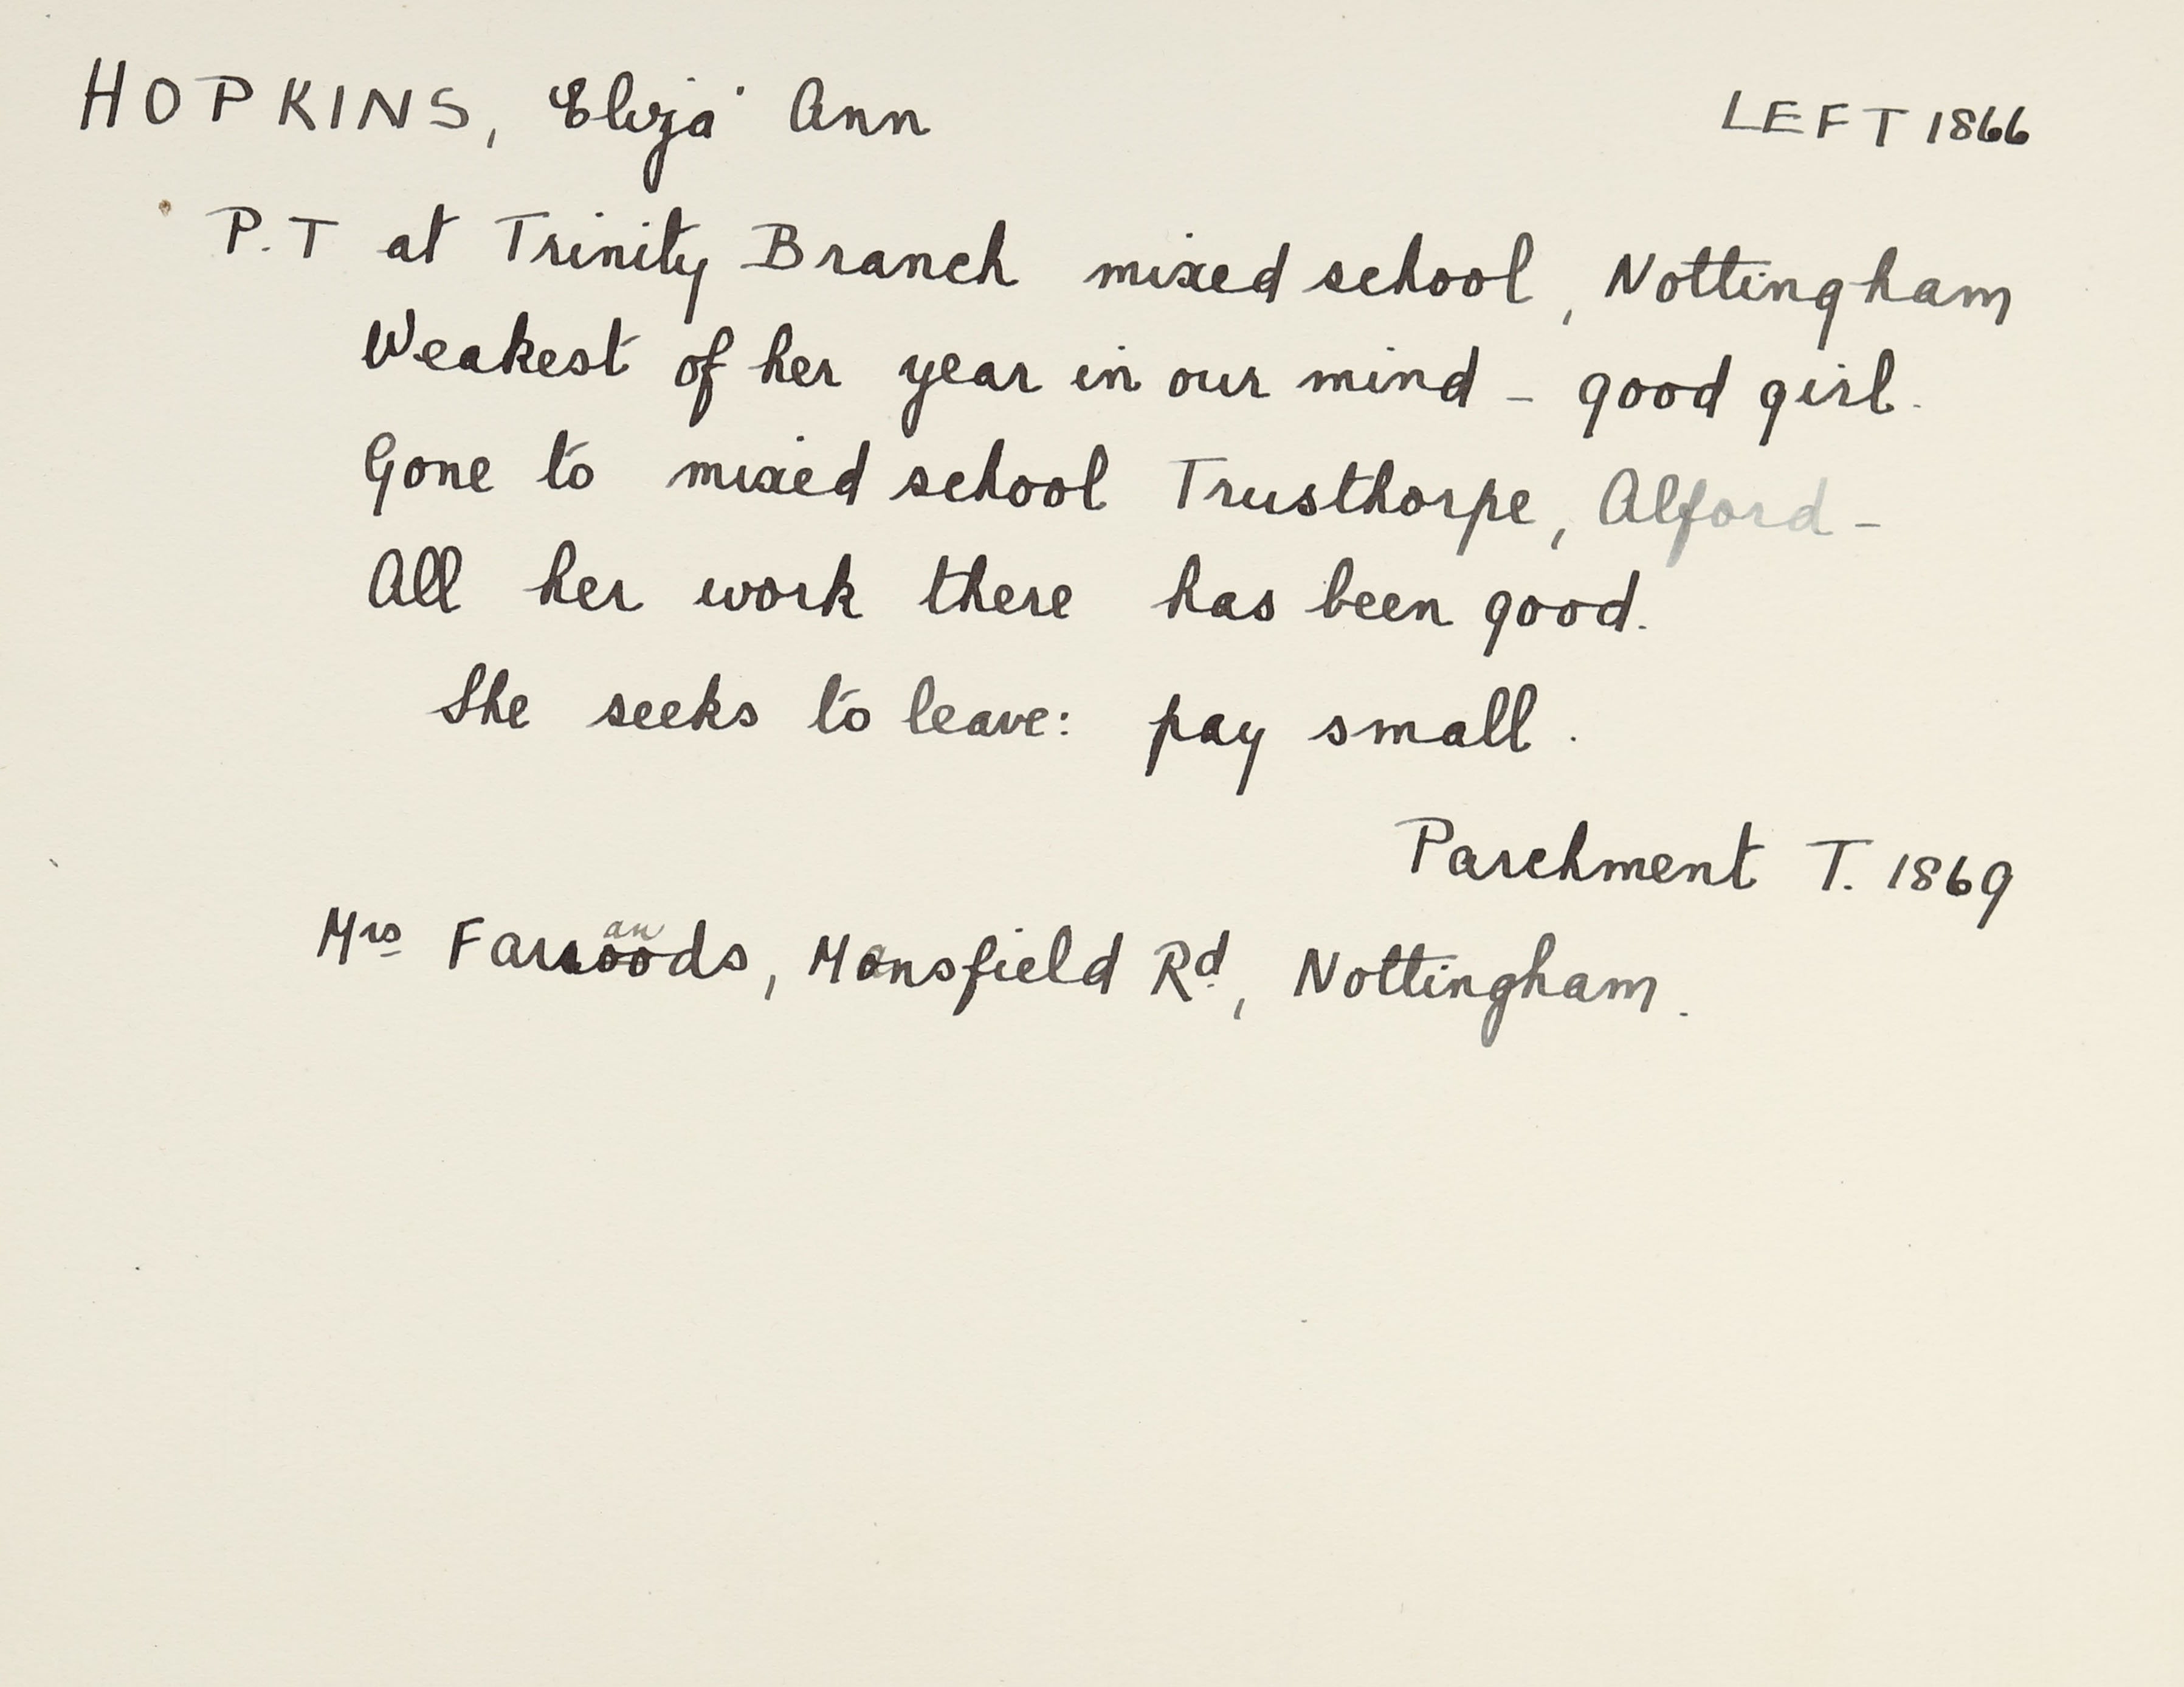 HOPKINS, Eliza Ann LEFT 1866
P.T at Trinity Branch mixed school, Nottingham
Weakest of her year in our mind - good girl.
Gone to mixed school Trusthorpe, Alford -
All her work there has been good.
She seeks to leave: pay small.
Parchment T. 1869
an
Mrs, Mansfield Rd, Nottingham.